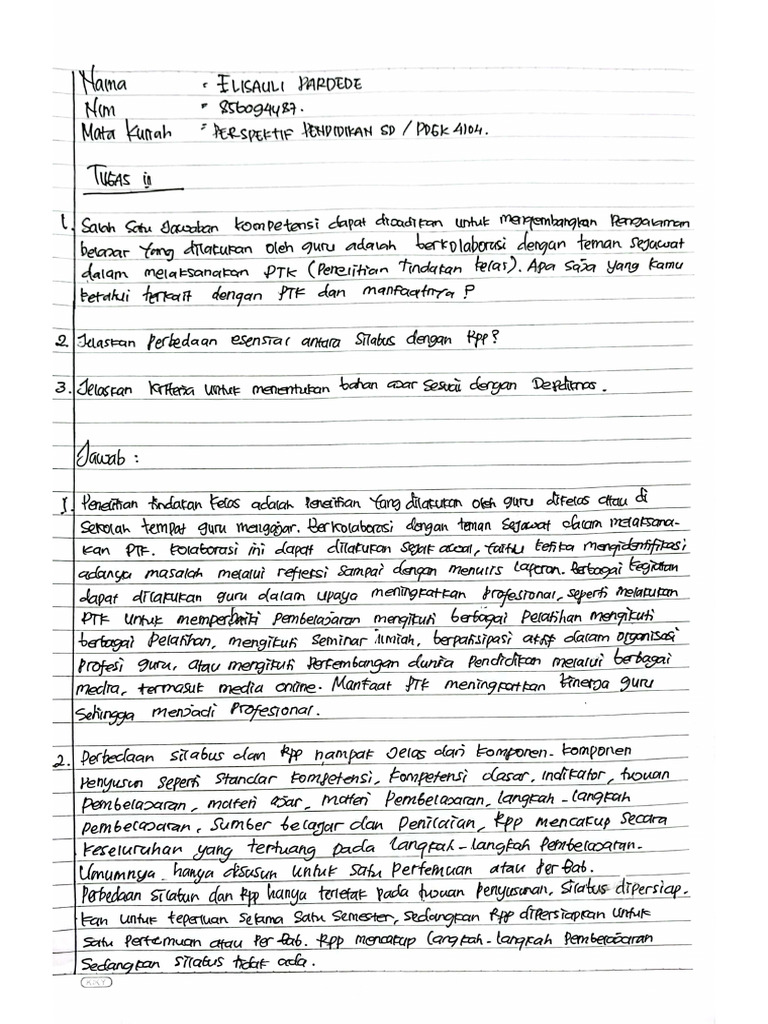 Nama : ELISAULI PARDEDE
Nim : 856094487.
Mata Kuliah : PERSPEKTIF PENDIDIKAN SD / PDGK 4104.
TUGAS III
1. Salah satu jawaban kompetensi dapat dijadikan untuk mengembangkan Pengalaman
belajar Yang dilakukan oleh guru adalah berkolaborasi dengan teman sejawat
dalam melaksanakan PTK (Penelitian Tindakan kelas). Apa saja yang kamu
ketahui terkait dengan PTK dan manfaatnya ?
2. Jelaskan Perbedaan esensial antara Silabus dengan Rpp ?
3. Jelaskan Kriteria untuk menentukan bahan ajar Sesuai dengan Depdiknas.
Jawab :
1. Penelitian tindakan Kelas adalah Penelitian Yang dilakukan oleh guru dikelas atau di
sekolah tempat guru mengajar. Berkolaborasi dengan teman Sejawat dalam melaksana-
kan PTK. Kolaborasi ini dapat dilakukan sejak awal, yaitu ketika mengidentifikasi
adanya masalah melalui refleksi sampai dengan menulis laporan. Berbagai kegiatan
dapat dilakukan guru dalam upaya meningkatkan Profesional, seperti melakukan
PTK untuk memperbaiki Pembelajaran mengikuti berbagai Pelatihan mengikuti
berbagai Pelatihan, mengikuti Seminar ilmiah, berpatisipasi aktif dalam organisasi
Profesi guru, atau mengikuti Perkembangan dunia Pendidikan melalui berbagai
media, termasuk media online. Manfaat PTK meningkatkan kinerja guru
Sehingga menjadi Profesional.
2. Perbedaan silabus dan Rpp nampak Jelas dari Komponen-komponen
Penyusun seperti Standar kompetensi, Kompetensi dasar, indikator, tujuan
Pembelajaran, materi ajar, Materi Pembelajaran, langkah-langkah
Pembelajaran, Sumber belajar dan Penilaian, Rpp mencakup Secara
Keseluruhan yang tertuang pada langkah-langkah Pembelajaran.
Umumnya hanya disusun untuk Satu Pertemuan atau Per Bab.
Perbedaan Silabus dan Rpp hanya terletak Pada tujuan Penyusunan, Silabus dipersiap-
kan untuk keperluan Selama Satu Semester, Sedangkan Rpp dipersiapkan Untuk
Satu Pertemuan atau Per Bab. Rpp mencakup langkah-langkah Pembelajaran
Sedangkan Silabus tidak ada.